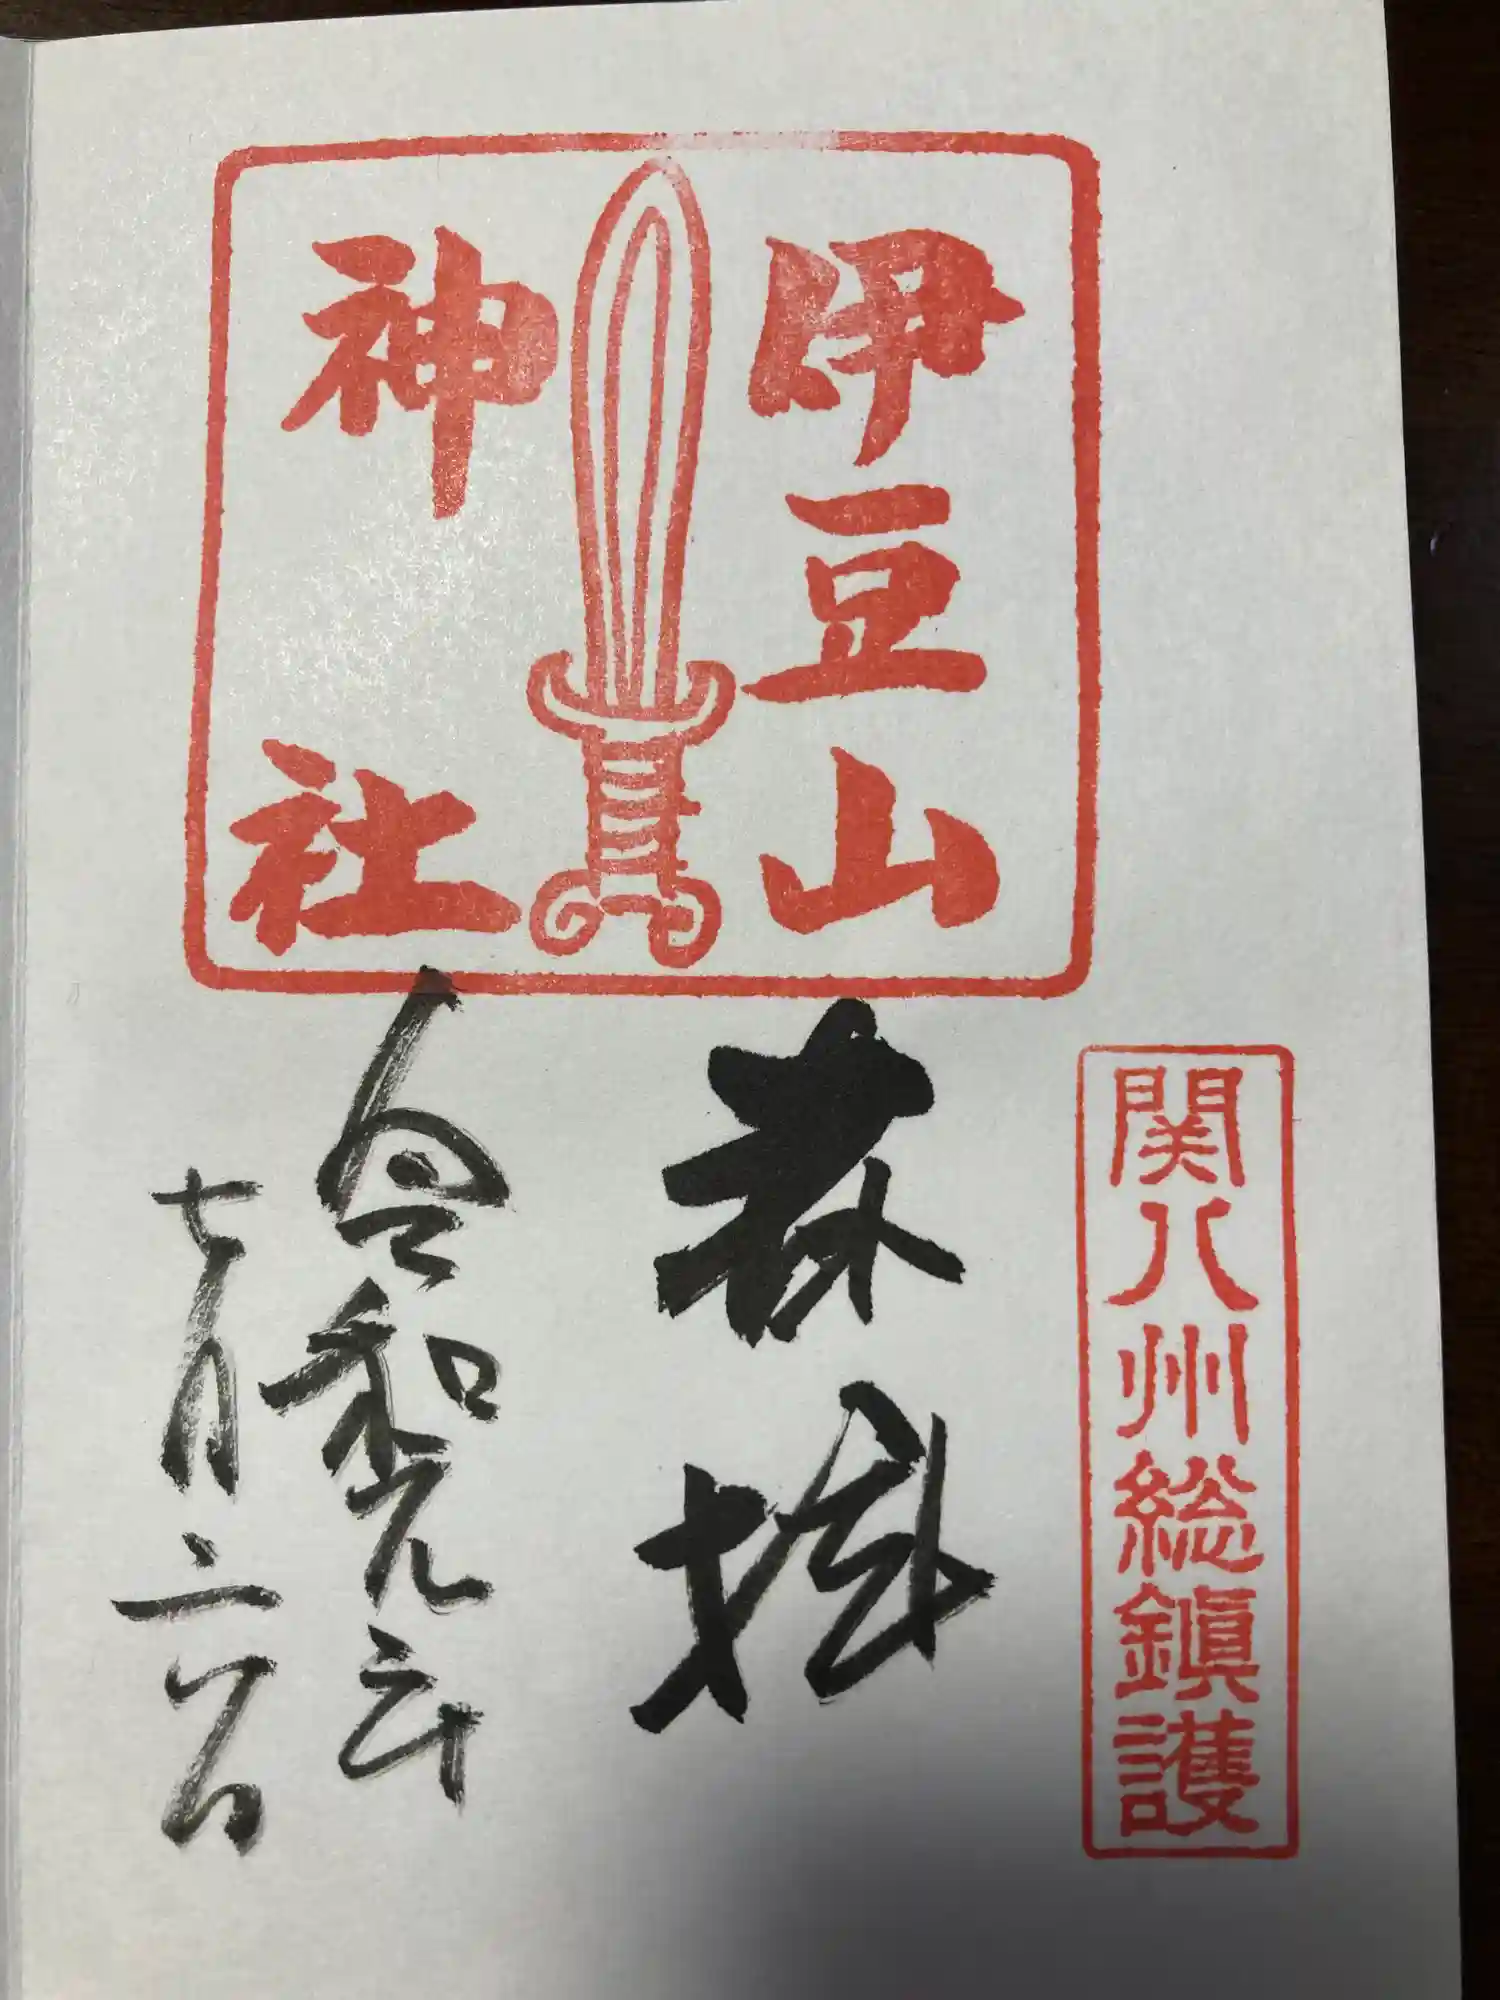 関八州総鎭護
伊豆山
神社
奉拝
令和元年
七月六日